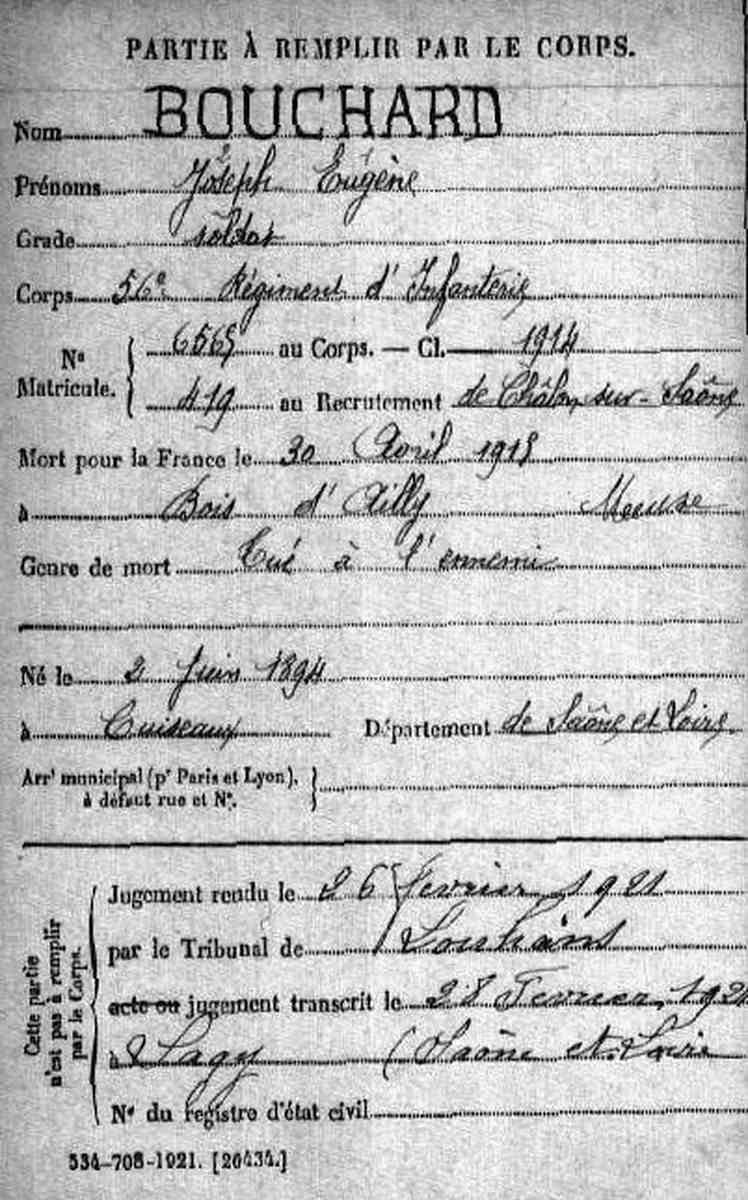 PARTIE À REMPLIR PAR LE CORPS.
Nom BOUCHARD
Prénoms Joseph Eugène
Grade soldat
Corps 56e Régiment d'Infanterie
Nº Matricule. 6565 au Corps. — Cl. 1914
419 au Recrutement de Châlon sur-Saône
Mort pour la France le 30 Avril 1915
à Bois d'Ailly Meuse
Genre de mort Tué à l'ennemi
Né le 2 Juin 1894
à Cuiseaux Département de Saône et Loire
Arrt municipal (pr Paris et Lyon),
à défaut rue et Nº.
Cette partie
n'est pas à remplir
par le Corps.
Jugement rendu le 26 fevrier 1921
par le Tribunal de Louhans
acte ou jugement transcrit le 28 Fevrier 1921
à Sagy (Saône et Loire
Nº du registre d'état civil
534-708-1921. [26434.]